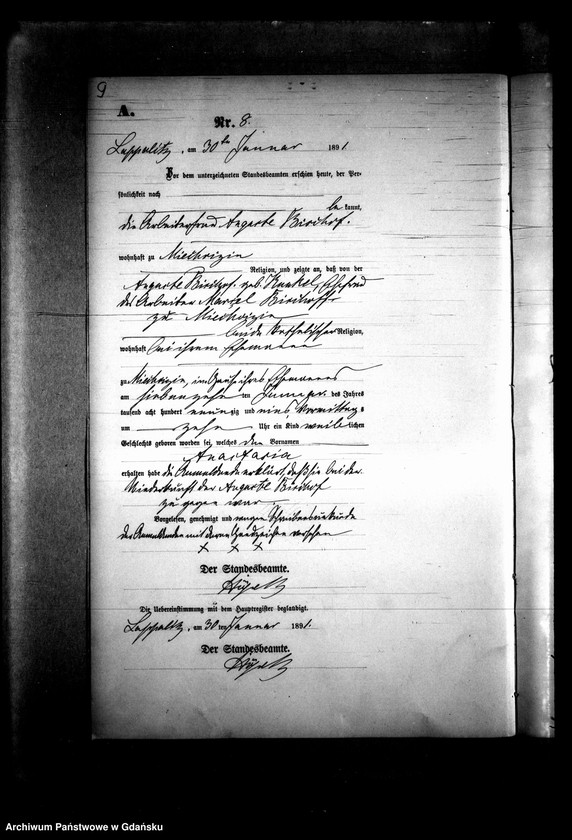 9
A.
Nr. 8.
am 30ten Januar 1891.
Vor dem unterzeichneten Standesbeamten erschien heute, der Per-
sönlichkeit nach
be kannt,
die Arbeiterfrau Auguste Birchof.
wohnhaft zu Miechrizin
Religion, und zeigte an, daß von der
Auguste Birchof. geb. Kunkel, Ehefrau
des Arbeiter Marcel Birchoff
zu Miechrizin
beide katholischer Religion,
wohnhaft bei ihrem Ehemanne
zu Miechrizin, im Hause ihres Ehemannes
am siebenzehn ten Januar des Jahres
tausend acht hundert neunzig und eins, Vormittags
um zehn Uhr ein Kind weiblichen
Geschlechts geboren worden sei, welches den Vornamen
Anastasia
erhalten habe die Anmeldende erklärt, daß sie bei der
Niederkunft der Auguste Birchof
zugegen war
Vorgelesen, genehmigt und wegen Schreibensunkunde
der Anmeldenden mit deren Handzeichen versehen
x x x
Der Standesbeamte.
Die Uebereinstimmung mit dem Hauptregister beglaubigt.
am 30 ten Januar 1891.
Der Standesbeamte.
Archiwum Państwowe w Gdańsku